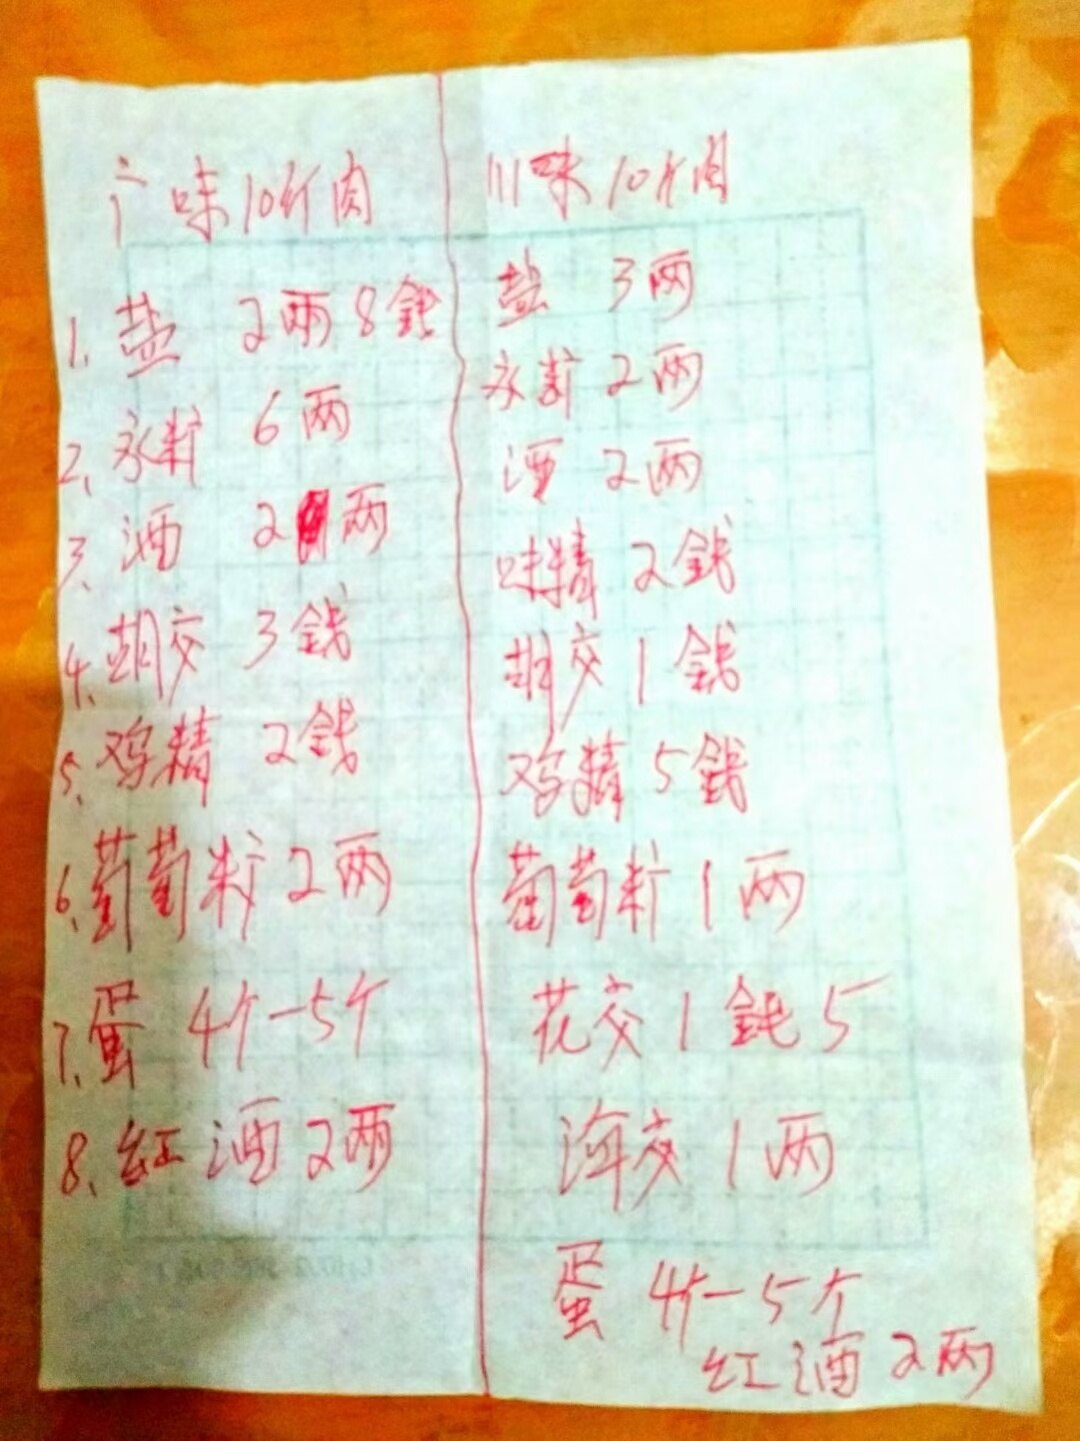 广味10斤肉
1、盐 2两8錢
2、永粁 6两
3、酒 2两
4、胡交 3錢
5、鸡精 2錢
6、葡萄粁 2两
7、蛋 4个-5个
8、红酒 2两
川味10斤肉
盐 3两
永粁 2两
酒 2两
味精 2錢
胡交 1錢
鸡精 5錢
葡萄粁 1两
花交 1錢5
海交 1两
蛋 4个-5个
红酒 2两